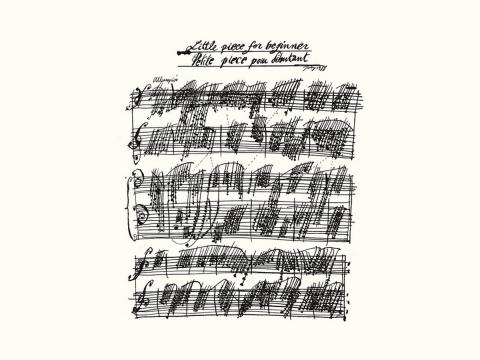 Little piece for beginner
Petite piece pour débutant